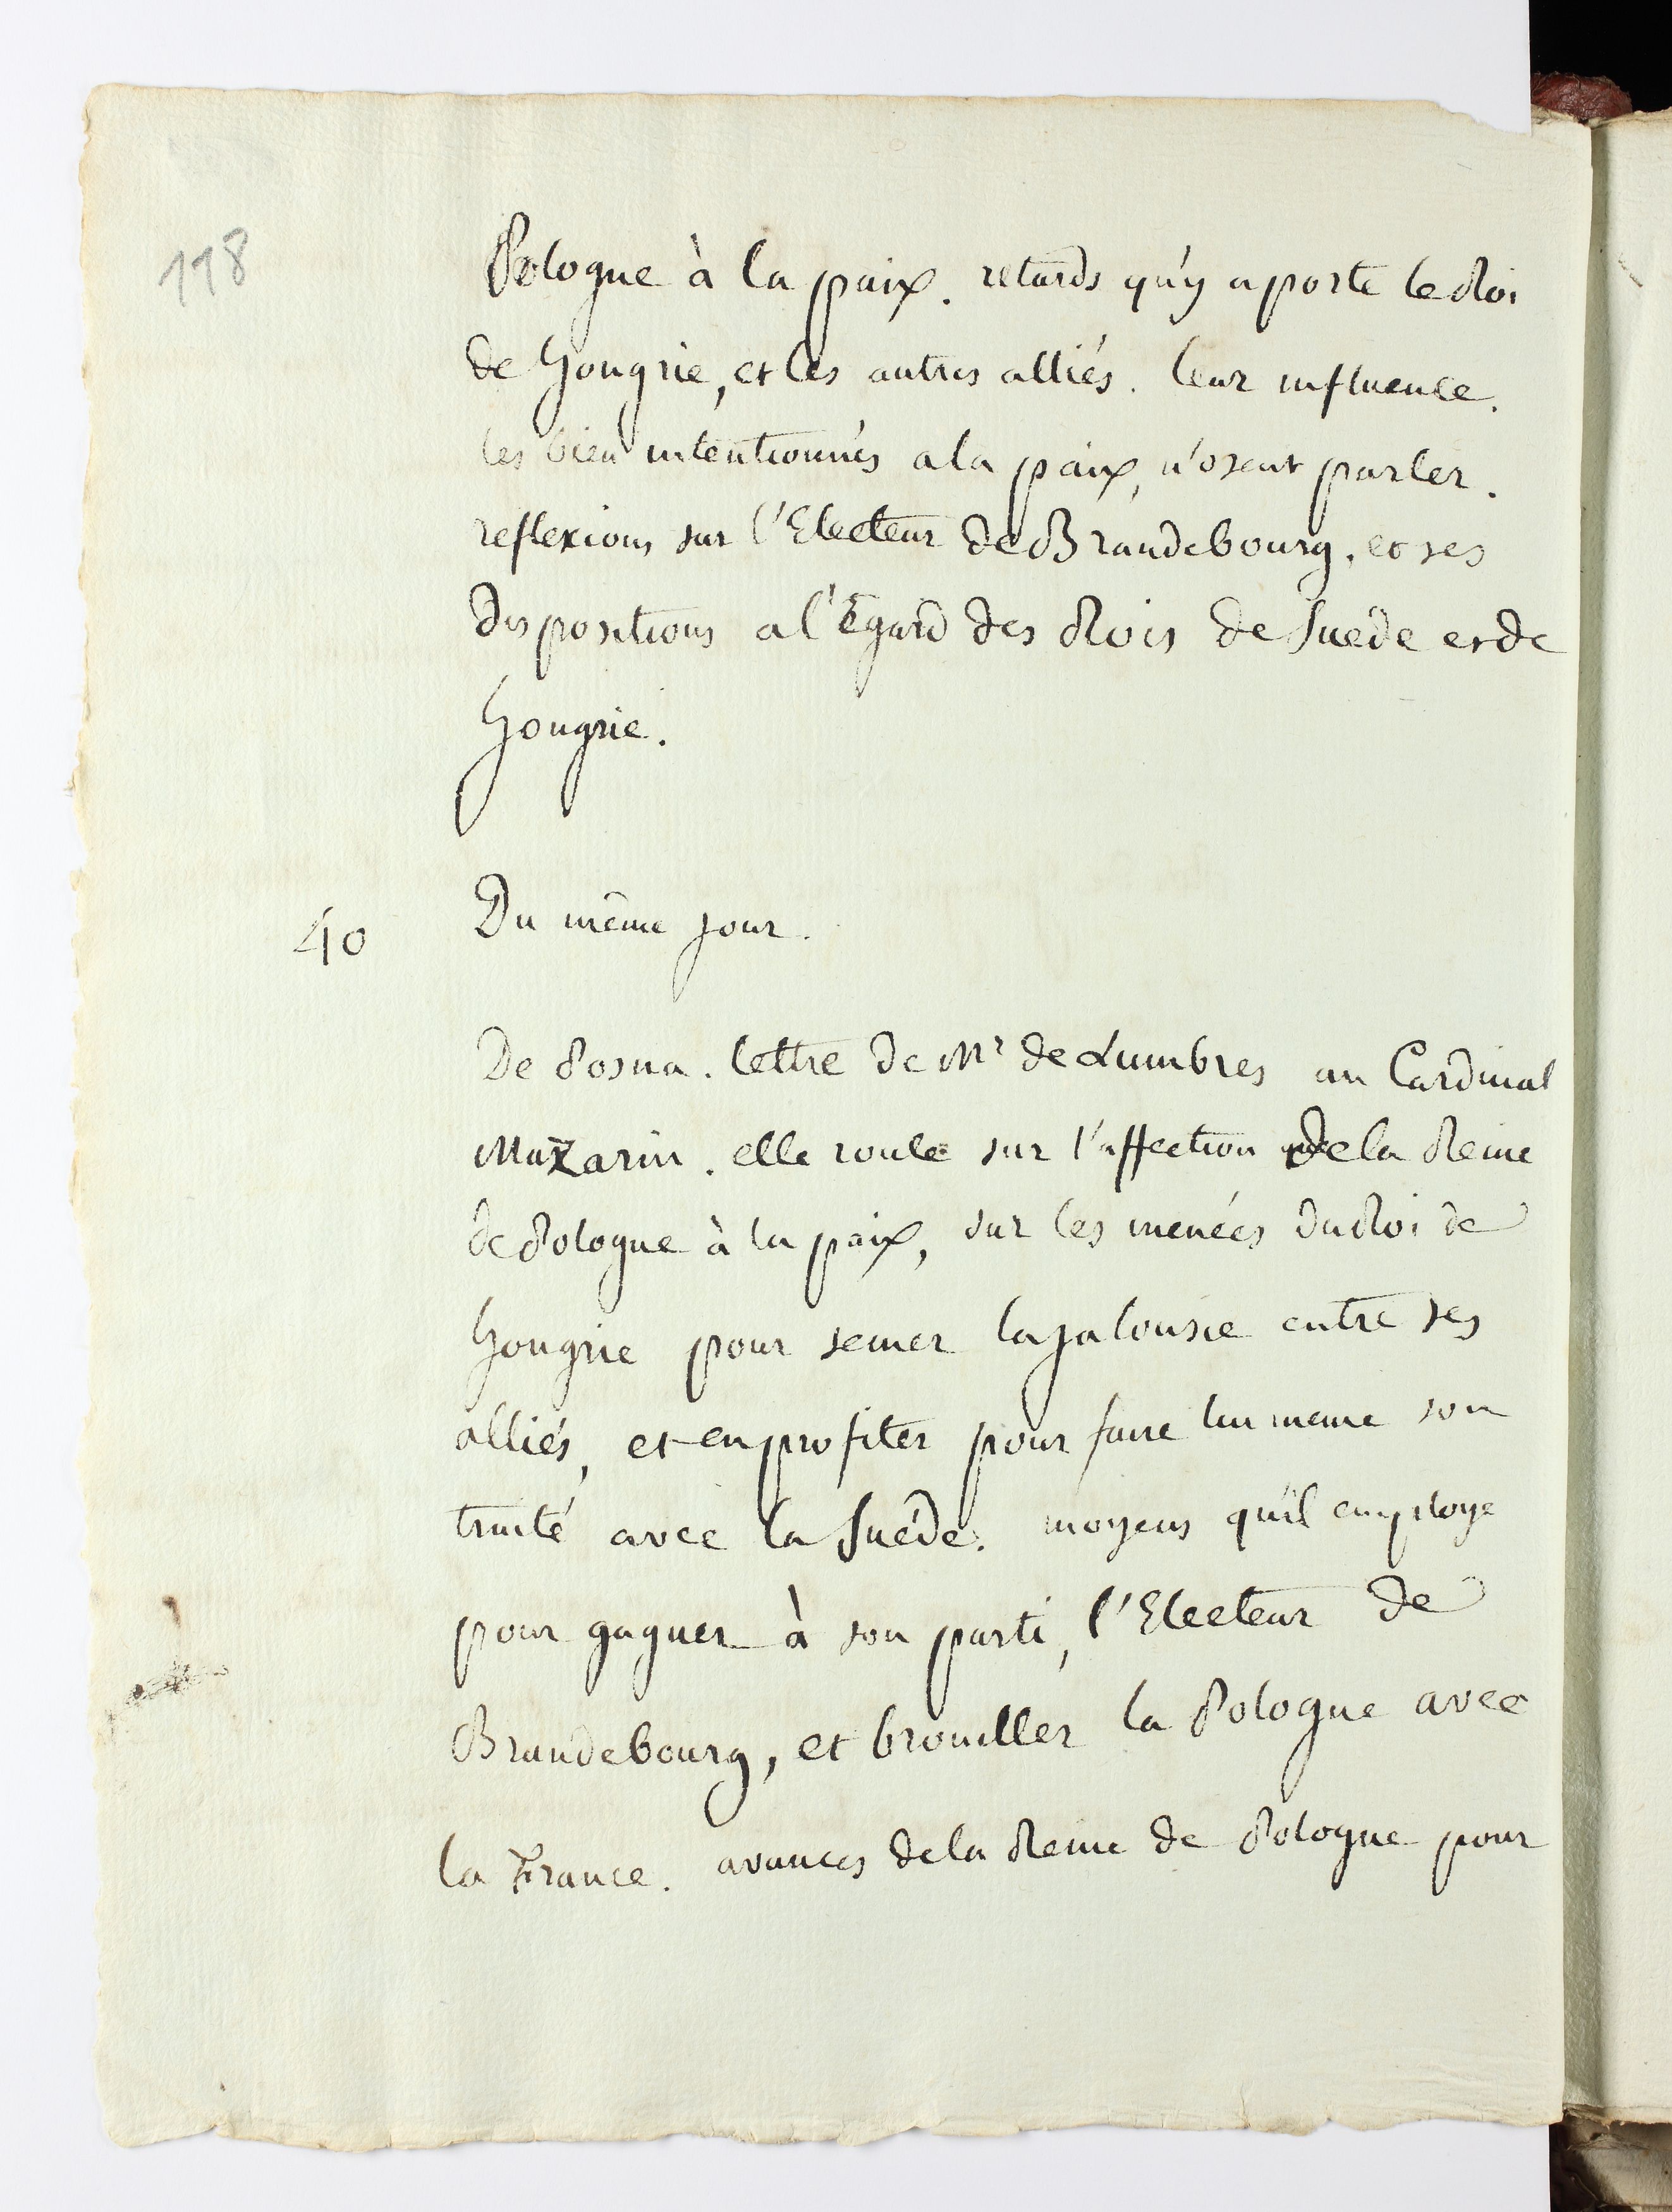 118
Pologne à la paix. retards qu'y aporte le Roi
de hongrie, et les autres alliés. leur influence.
les bien intentionnés a la paix, n'osent parler.
reflexions sur l'Electeur de Brandebourg, et ses
dispositions a l'Egard des Rois de Suede et de
hongrie.
40 Du même jour.
De Posna. lettre de Mr de Lumbres au Cardinal
Mazarin. elle roule sur l'affection de la Reine
de Pologne à la paix, sur les menées du Roi de
hongrie pour semer la jalousie entre ses
alliés, et en profiter pour faire lui meme son
traité avec la Suéde. moyens qu'il employe
pour gagner à son parti, l'Electeur de
Brandebourg, et brouiller la Pologne avec
la France. avances de la Reine de Pologne pour